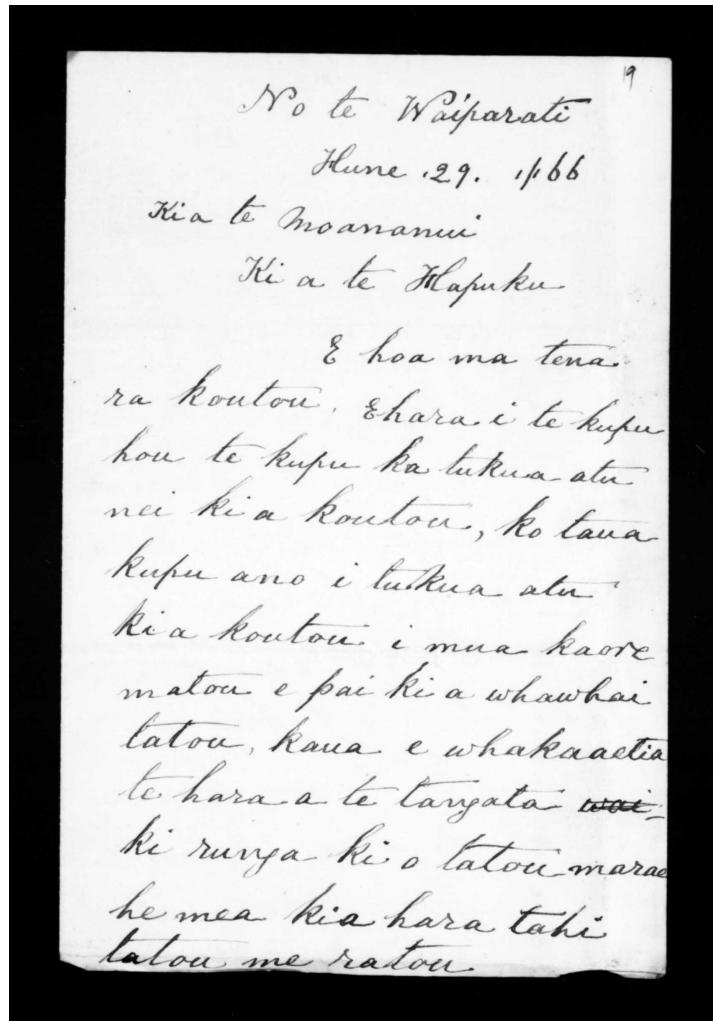 19
No te Waiparati
Hune .29. 1/66
Kia te Moananui
Ki a te Hapuku
E hoa ma tena
ra koutou. Ehara i te kupu
hou te kupu ka tukua atu
nei ki a koutou, ko taua
kupu ano i tukua atu
ki a koutou i mua kaore
matou e pai ki a whawhai
tatou, kaua e whakaaetia
te hara a te tangata wai-
ki runga ki o tatou marae
he mea kia hara tahi
tatou me ratou